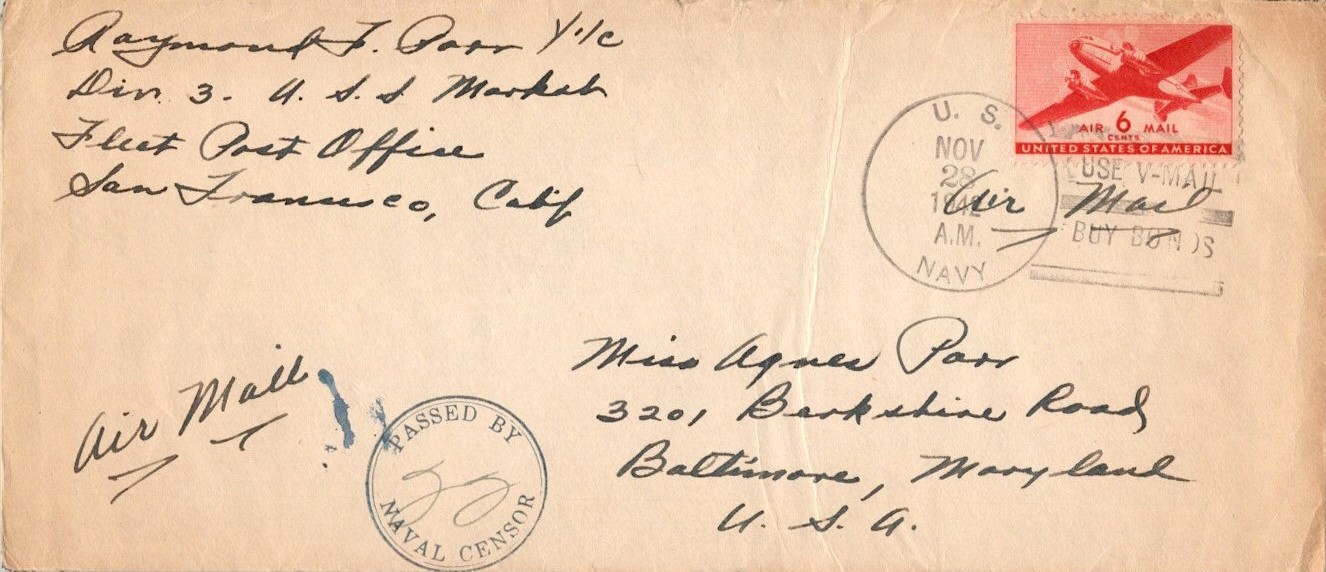 Raymond F. Parr Y1/c
Div. 3. U. S. S Markab
Fleet Post Office
San Francisco, Calif
AIR 6 MAIL
CENTS
UNITED STATES OF AMERICA
U. S.
NOV
28
1942
A.M.
NAVY
USE V-MAIL
BUY BONDS
Air Mail
Miss Agnes Parr
3201 Berkshire Road
Baltimore, Maryland
U. S. A.
Air Mail
PASSED BY
NAVAL CENSOR